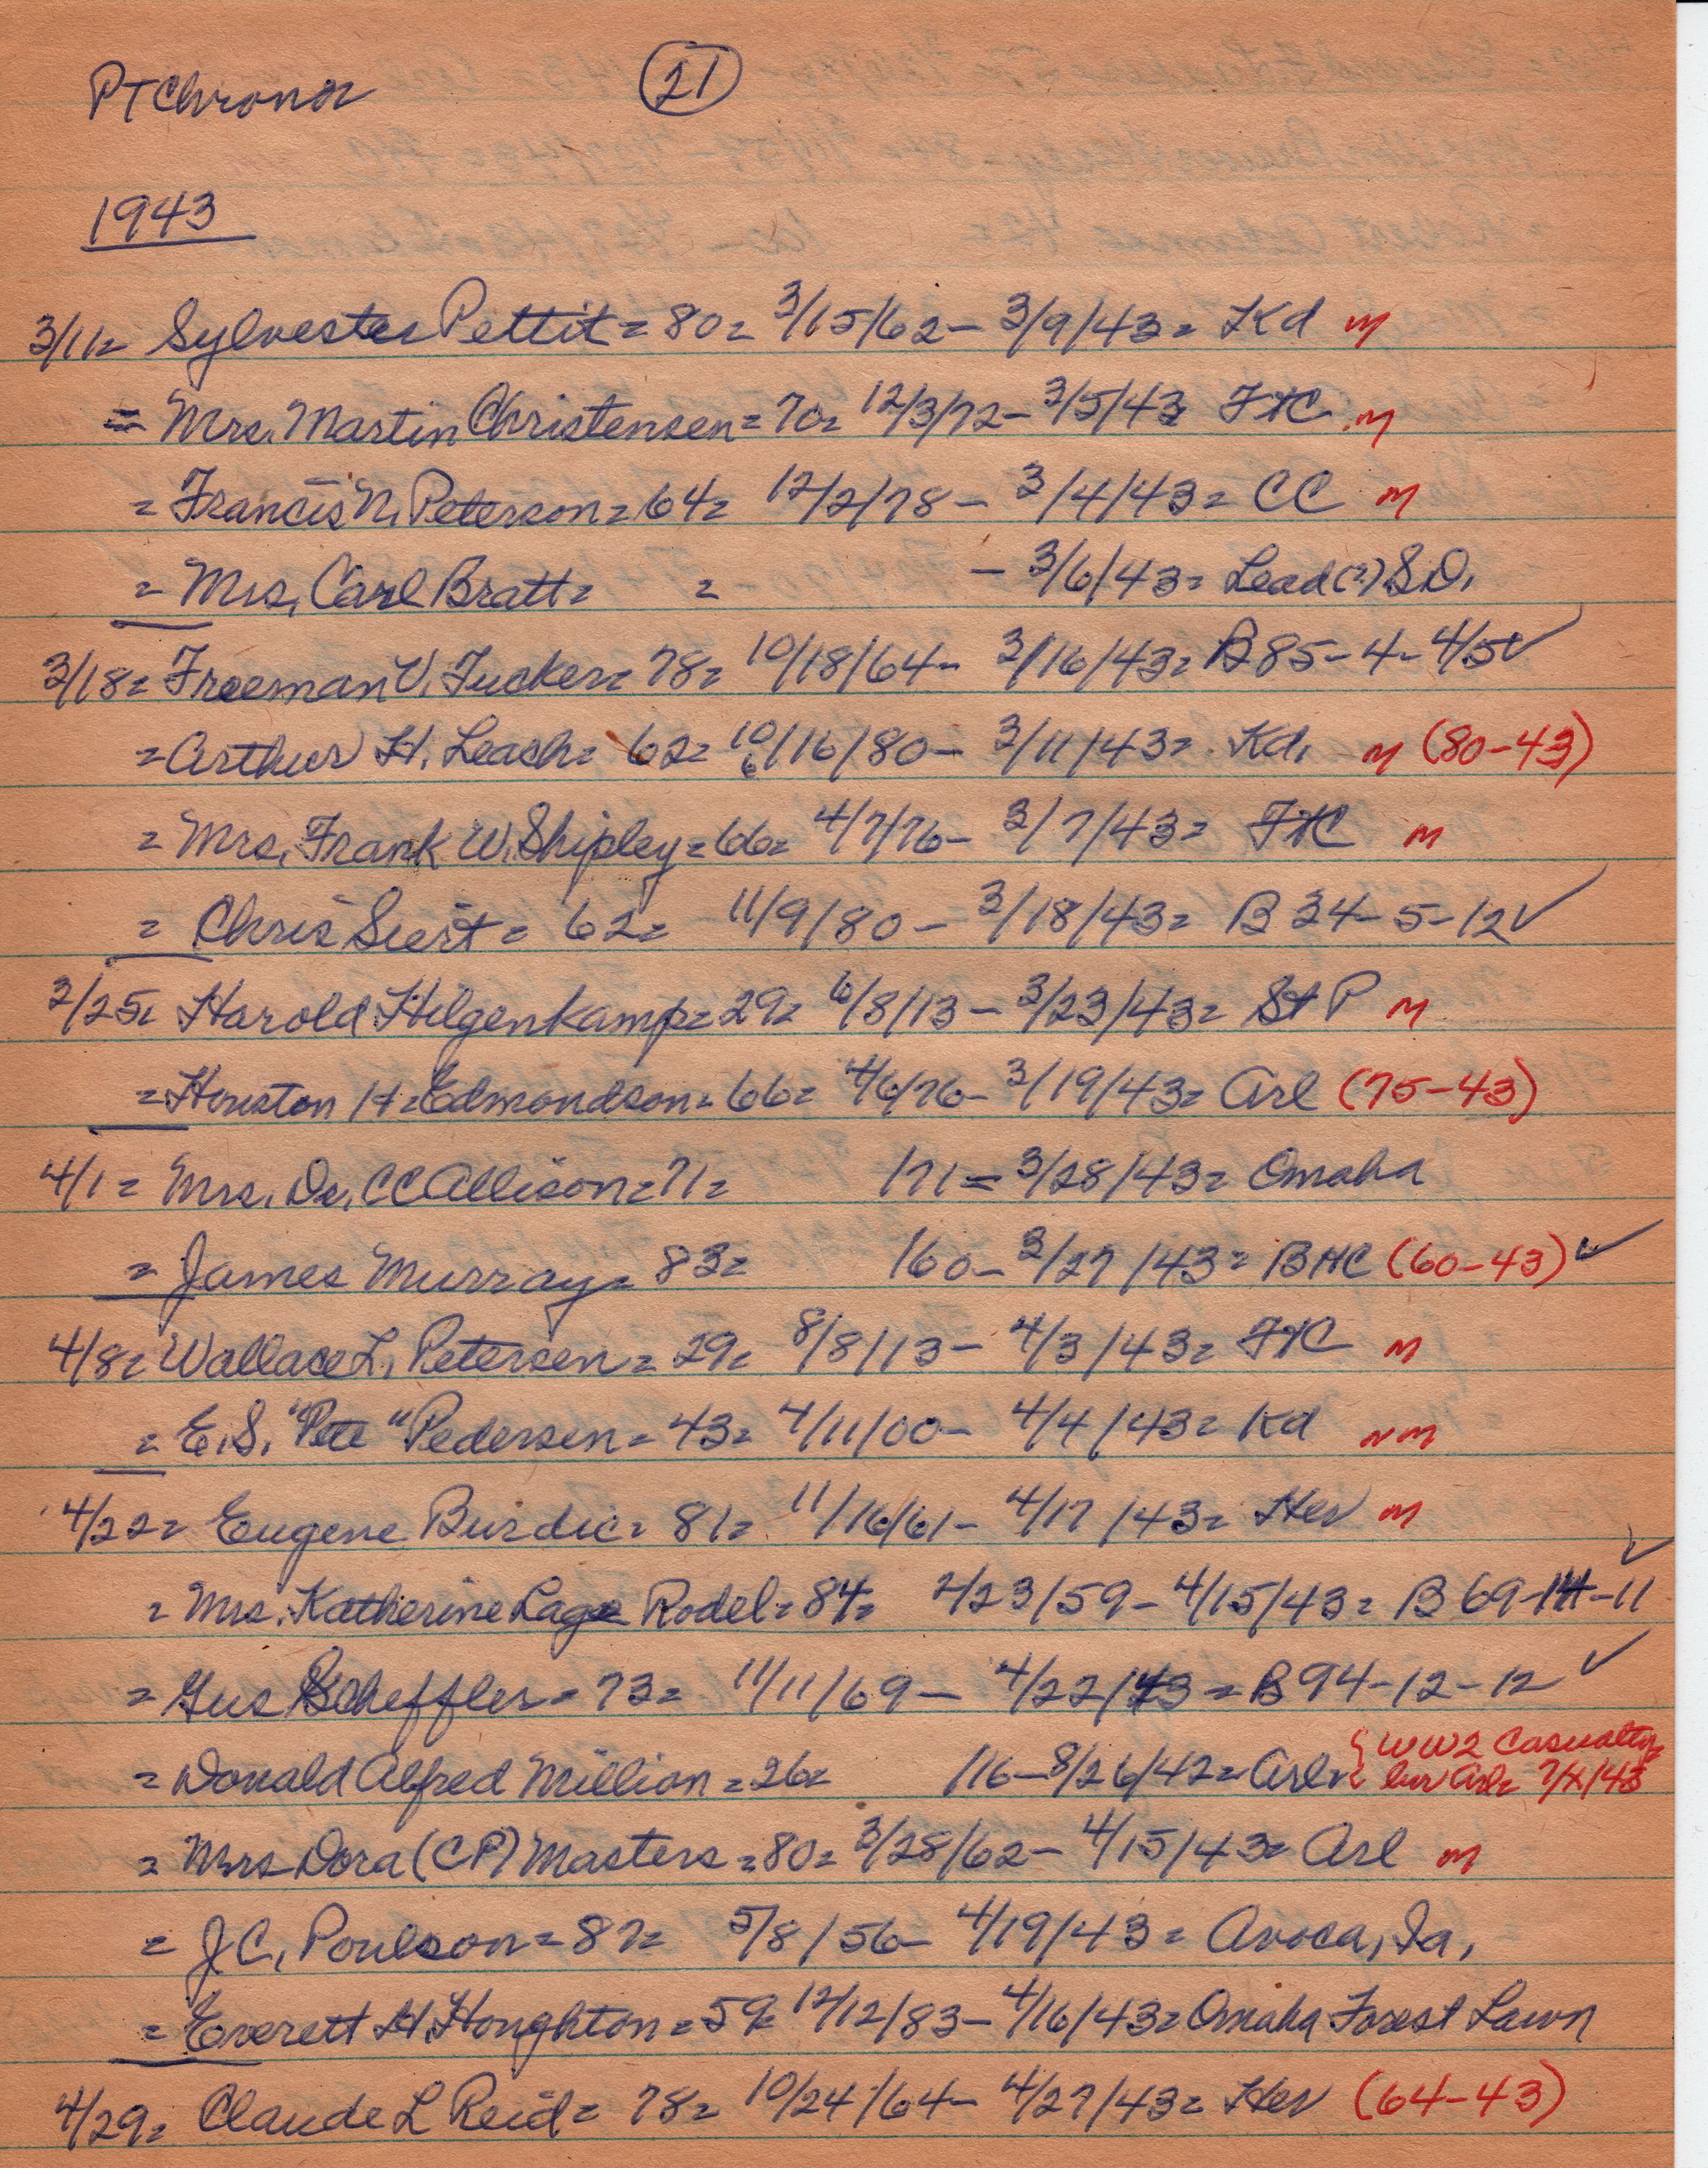 PTChronoz
21
1943
3/11= Sylvester Pettit = 80= 3/15/62 - 3/9/43 = Kd m
= Mrs. Martin Christensen = 70= 12/3/72 - 3/5/43 FtC m
= Francis N. Peterson = 64= 12/2/78 - 3/4/43 = CC m
= Mrs. Carl Bratt = = - 3/6/43 = Lead(?) S.D.
3/18= Freeman V. Tucker = 78= 10/18/64 - 3/16/43 = B 85-4-4/5 ✓
= Arthur H. Leach = 62= 10/16/80 - 3/11/43 = Kd. m (80-43)
= Mrs. Frank W. Shipley = 66= 4/7/76 - 3/7/43 = FtC m
= Chris Siert = 62= 11/9/80 - 3/18/43 = B 34-5-12 ✓
3/25= Harold Hilgenkamp = 29= 6/8/13 - 3/23/43 = St P m
= Houston H. Edmondson = 66= 4/6/76 - 3/19/43 = Arl (75-43)
4/1= Mrs. Dr. CC Allison = 71= /71 = 3/28/43 = Omaha
= James Murray = 83= /60 - 3/27/43 = BHC (60-43) ✓
4/8= Wallace L. Petersen = 29= 8/8/13 - 4/3/43 = FtC m
= E.S. "Pete" Pedersen = 43= 4/11/00 - 4/4/43 = Kd nm
4/22= Eugene Burdic = 81= 11/16/61 - 4/17/43 = Her m
= Mrs. Katherine Lage Rodel = 84= 2/23/59 - 4/15/43 = B 69-14-11 ✓
= Gus Scheffler = 73= 11/11/69 - 4/22/43 = B 94-12-12 ✓
= Donald Alfred Million = 26= /16 - 8/26/42 = Arl= { WW2 Casualty
bur Arl= 7/x/48
= Mrs Dora (CP) Masters = 80= 3/28/62 - 4/15/43 = Arl m
= J.C. Poulson = 87= 5/8/56 - 4/19/43 = Avoca, Ia.
= Everett H. Houghton = 59= 12/12/83 - 4/16/43 = Omaha Forest Lawn
4/29= Claude L Reid = 78= 10/24/64 - 4/27/43 = Her (64-43)